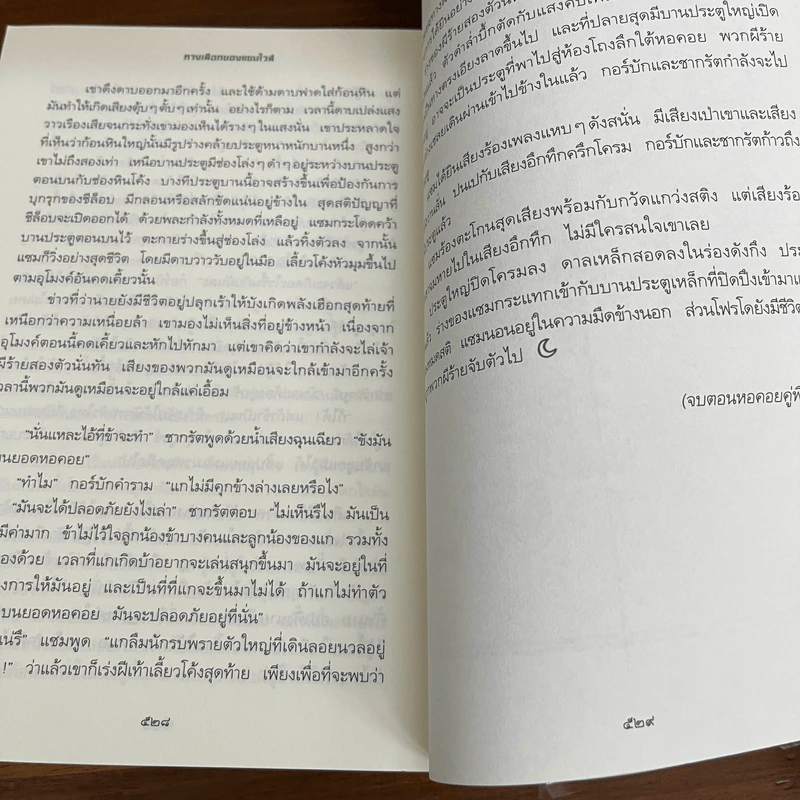 ทางเลือกของแซมไวส์
เขาดึงดาบออกมาอีกครั้ง และใช้ด้ามดาบฟาดใส่ก้อนหิน แต่
มันทำให้เกิดเสียงตุ้บๆ ตั้บๆ เท่านั้น อย่างไรก็ตาม เวลานี้ดาบเปล่งแสง
วาวเรืองเสียจนกระทั่งเขามองเห็นได้รางๆ ในแสงนั่น เขาประหลาดใจ
ที่เห็นว่าก้อนหินใหญ่นั้นมีรูปร่างคล้ายประตูหนาหนักบานหนึ่ง สูงกว่า
เขาไม่ถึงสองเท่า เหนือบานประตูมีช่องโล่งๆ ดำๆ อยู่ระหว่างบานประตู
ตอนบนกับช่องหินโค้ง บางทีประตูบานนี้อาจสร้างขึ้นเพื่อป้องกันการ
บุกรุกของชีล็อบ มีกลอนหรือสลักขัดแน่นอยู่ข้างใน สุดสติปัญญาที่
ชีล็อบจะเปิดออกได้ ด้วยพละกำลังทั้งหมดที่เหลือยู่ แซมกระโดดคว้า
บานประตูตอนบนไว้ ตะกายร่างขึ้นสู่ช่องโล่ง แล้วทิ้งตัวลง จากนั้น
แซมก็วิ่งอย่างสุดชีวิต โดยมีดาบวาววับอยู่ในมือ เลี้ยวโค้งหัวมุมขึ้นไป
ตามอุโมงค์อันคดเคี้ยวนั้น
ข่าวที่ว่านายยังมีชีวิตอยู่ปลุกเร้าให้บังเกิดพลังเฮือกสุดท้ายที่
เหนือกว่าความเหนื่อยล้า เขามองไม่เห็นสิ่งที่อยู่ข้างหน้า เนื่องจาก
อุโมงค์ตอนนี้คดเคี้ยวและหักไปหักมา แต่เขาคิดว่าเขากำลังจะไล่เจ้า
ผีร้ายสองตัวนั่นทัน เสียงของพวกมันดูเหมือนจะใกล้เข้ามาอีกครั้ง
เวลานี้พวกมันดูเหมือนจะอยู่ใกล้แค่เอื้อม
“นั่นแหละไอ้ที่ข้าจะทำ” ชากรัตพูดด้วยน้ำเสียงฉุนเฉียว “ขังมัน
บนยอดหอคอย”
“ทำไม” กอร์บักคำราม “แกไม่มีคุกข้างล่างเลยหรือไง”
“มันจะได้ปลอดภัยยังไงเล่า” ชากรัตตอบ “ไม่เห็นรึไง มันเป็น
มีค่ามาก ข้าไม่ไว้ใจลูกน้องข้าบางคนและลูกน้องของแก รวมทั้ง
องด้วย เวลาที่แกเกิดบ้าอยากจะเล่นสนุกขึ้นมา มันจะอยู่ในที่
งการให้มันอยู่ และเป็นที่ที่แกจะขึ้นมาไม่ได้ ถ้าแกไม่ทำตัว
บนยอดหอคอย มันจะปลอดภัยอยู่ที่นั่น”
แน่รึ” แซมพูด “แกลืมนักรบพรายตัวใหญ่ที่เดินลอยนวลอยู่
!” ว่าแล้วเขาก็เร่งฝีเท้าเลี้ยวโค้งสุดท้าย เพียงเพื่อที่จะพบว่า
๕๒๘
ของผีร้ายสองตัวนั้น
แล้ว ตัวดำล่ำบึ้กตัดกับแสงคบเพลิง
ทางตรงเอียงลาดขึ้นไป และที่ปลายสุดมีบานประตูใหญ่เปิด
อาจจะเป็นประตูที่พาไปสู่ห้องโถงลึกใต้หอคอย พวกผีร้าย
เดินผ่านเข้าไปข้างในแล้ว กอร์บักและชากรัตกำลังจะไป
แซมได้ยินเสียงร้องเพลงแหบๆ ดังสนั่น มีเสียงเป่าเขาและเสียง
สั่น ปนเปกับเสียงอึกทึกครึกโครม กอร์บักและชากรัตก้าวถึง
ประตูแล้ว
แซมร้องตะโกนสุดเสียงพร้อมกับกวัดแกว่งสติง แต่เสียงร้อง
หายไปในเสียงอึกทึก ไม่มีใครสนใจเขาเลย
ประตูใหญ่ปิดโครมลง ดาลเหล็กสอดลงในร่องดังกึง ประ
ร่างของแซมกระแทกเข้ากับบานประตูเหล็กที่ปิดปึงเข้ามา
หมดสติ แซมนอนอยู่ในความมืดข้างนอก ส่วนโฟรโดยังมีชีวิต
พวกผีร้ายจับตัวไป
(จบตอนหอคอยคู่
๕๒๙